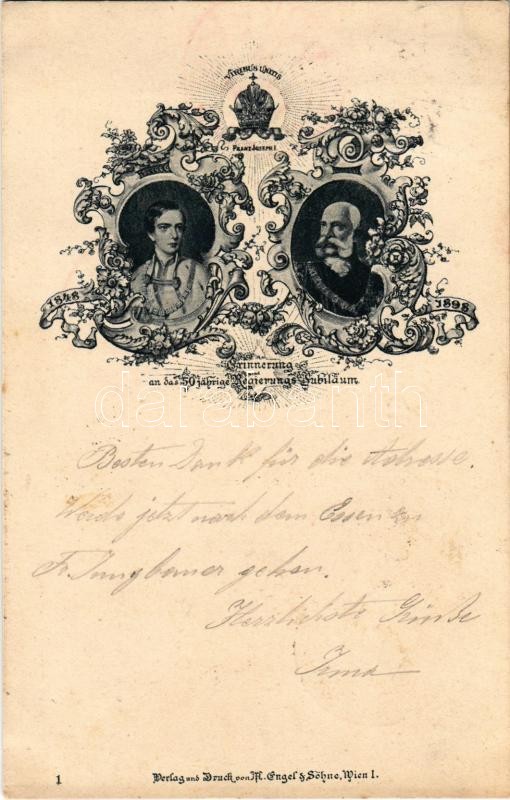 VIRIBUS UNITIS
FRANZ JOSEPH I
1848
1898
Erinnerung
an das 50 jährige Regierungs-Jubiläum.
Besten Dank für die Adresse.
Werde jetzt nach dem Essen zu
Fr. Jungbauer gehen.
Herzlichste Grüße
Irma
1
Verlag und Druck von M. Engel & Söhne, Wien I.
darabanth.com